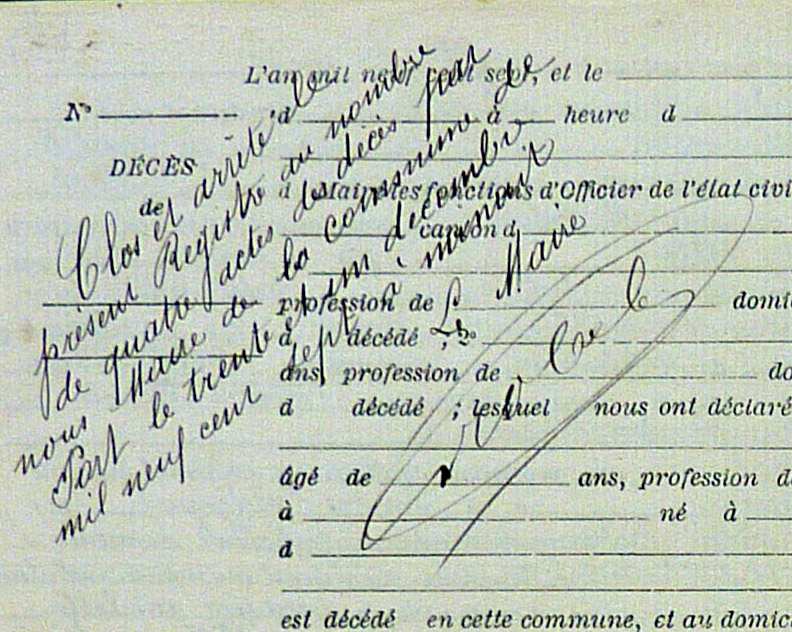 L'an mil neuf cent sept, et le
N°
à heure d
DÉCÈS
de
d Maire les fonctions d'Officier de l'état civi
canton d
profession de domic
d décédé
ans, profession de do
d décédé ; lesquel nous ont déclaré
âgé de ans, profession d
à né à
d
est décédé en cette commune, et au domic
Clos et arrêté le
présent Registre au nombre
de quatre actes de décès par
nous Maire de la commune de
Port le trente et un décembre
mil neuf cent sept à minuit
Le Maire